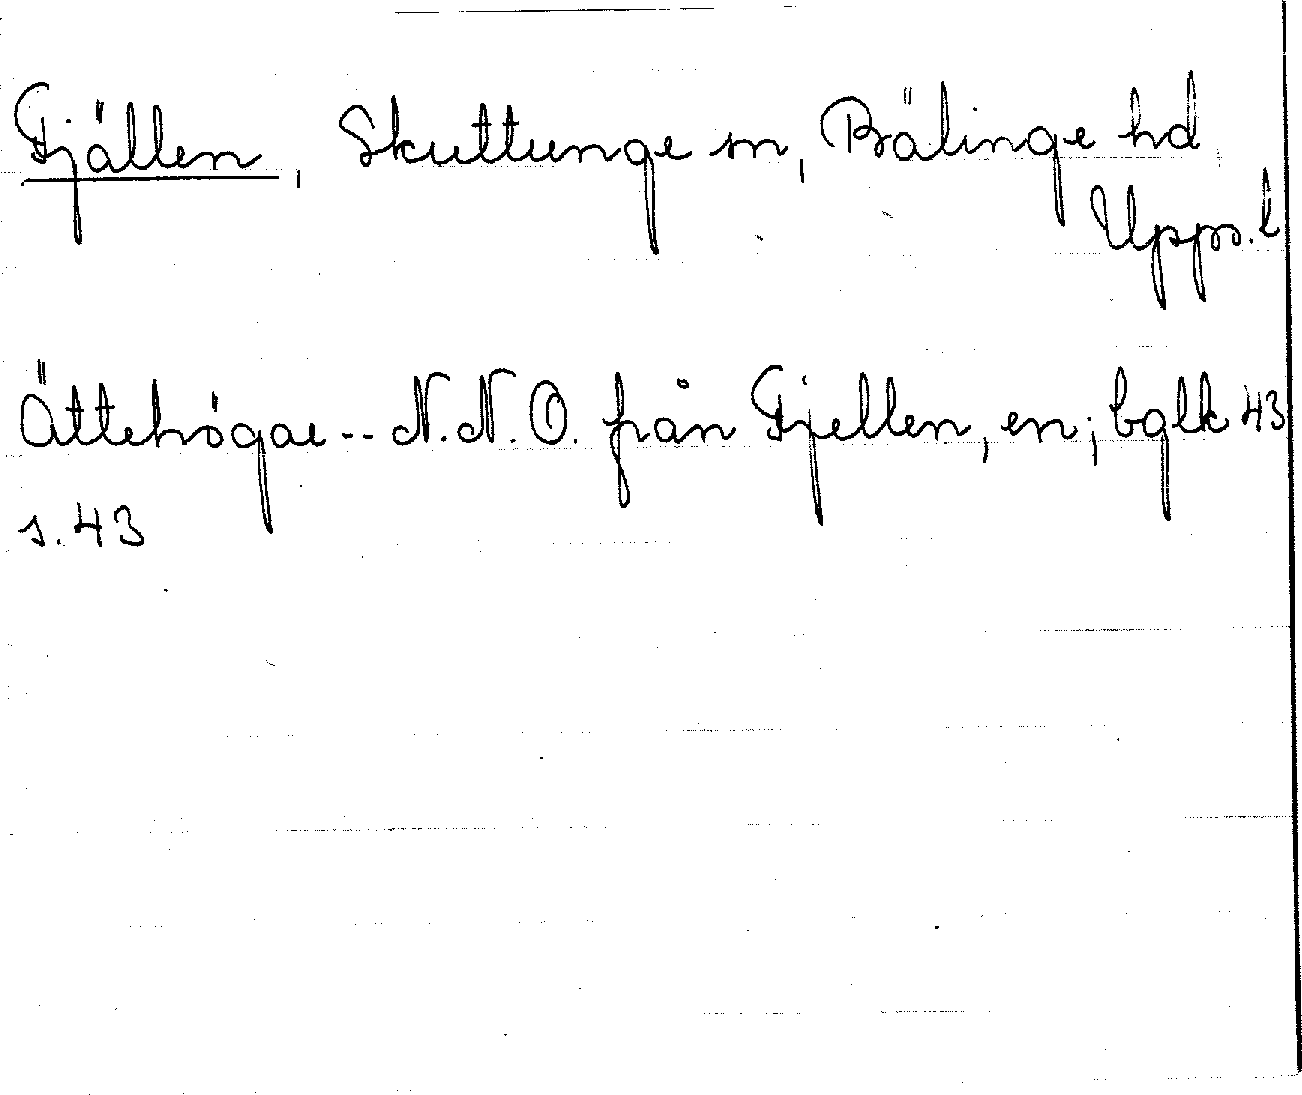 Fjällen, Skuttunge sn, Bälinge hd
Upps. l
Ättehögar -- N.N.O. från Fjellen, en; bglk 43
s. 43